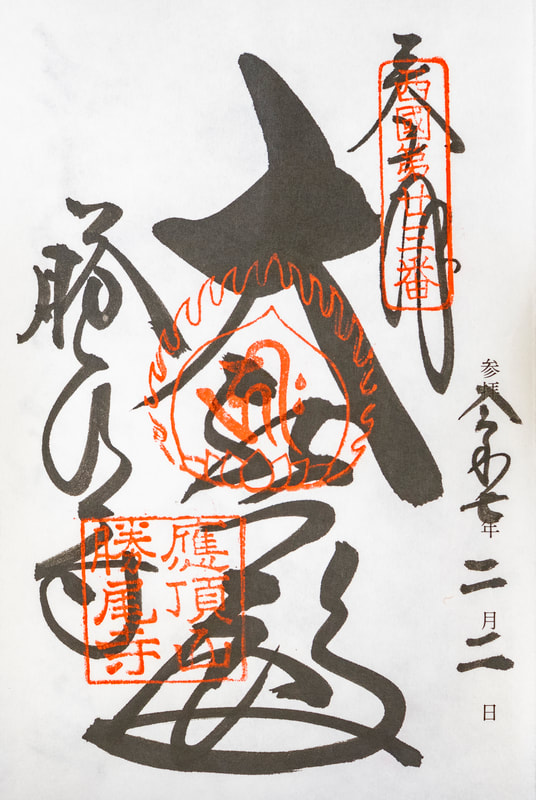 奉拝
西國第廿三番
参拝 令和七年 二月二日
大悲殿
勝尾寺
應頂山
勝尾寺